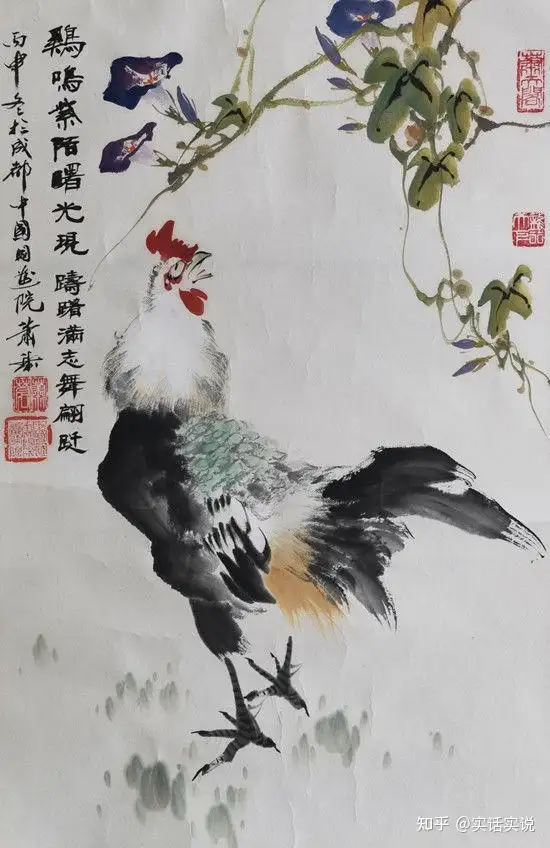 鷄鳴紫陌曙光現 躊躇滿志舞翩跹
丙申冬於成都中國国画院萧
知乎 @实话实说